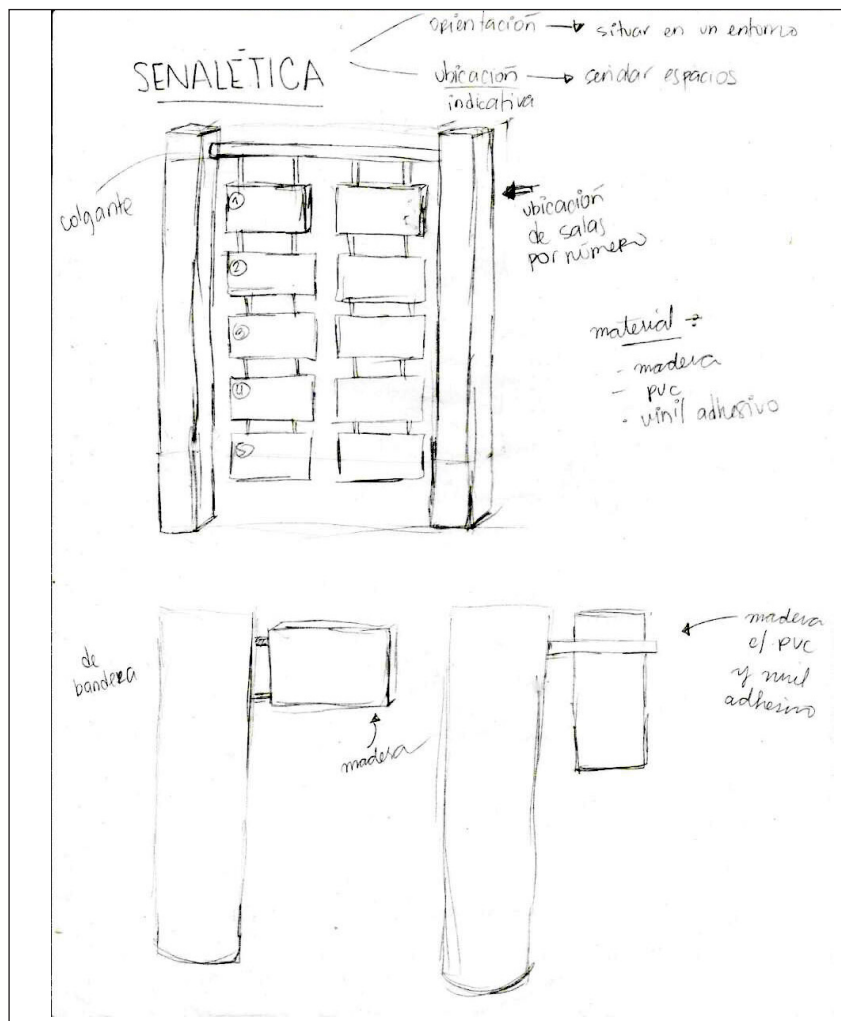 SENALÉTICA
orientación → situar en un entorno
ubicación → señalar espacios
indicativa
colgante
1
2
3
4
5
ubicación
de salas
por número
material :
- madera
- PVC
- vinil adhesivo
de
bandera
madera
madera
c/ PVC
y vinil
adhesivo